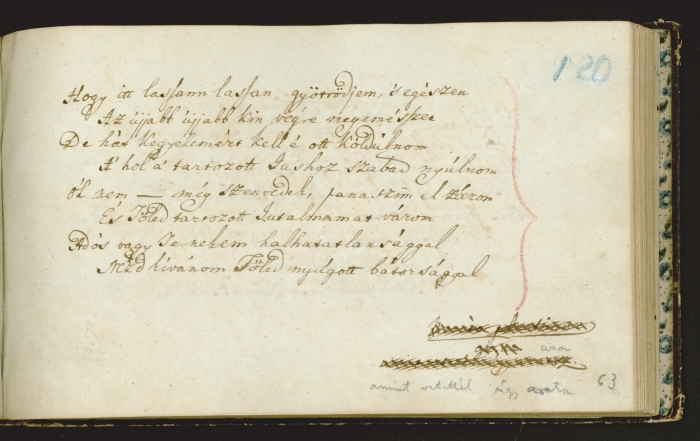 120
Hogy itt lassann lassan gyötrődjem, 's egészen
Az újjabb újjabb kin végre megemészsze
De hát kegyelemért kell é ott kóldúlnom
A' hol a' tartozott Jushoz szabad nyúlnom
óh nem — még szenvedek, panaszim el zárom
És Tőled tartozott Jutalmamat várom
Adós vagy Te nekem halhatatlansággal
Mellyet kivánom Tőled nyúgott bátorsággal
amint vetettél úgy aratsz
63